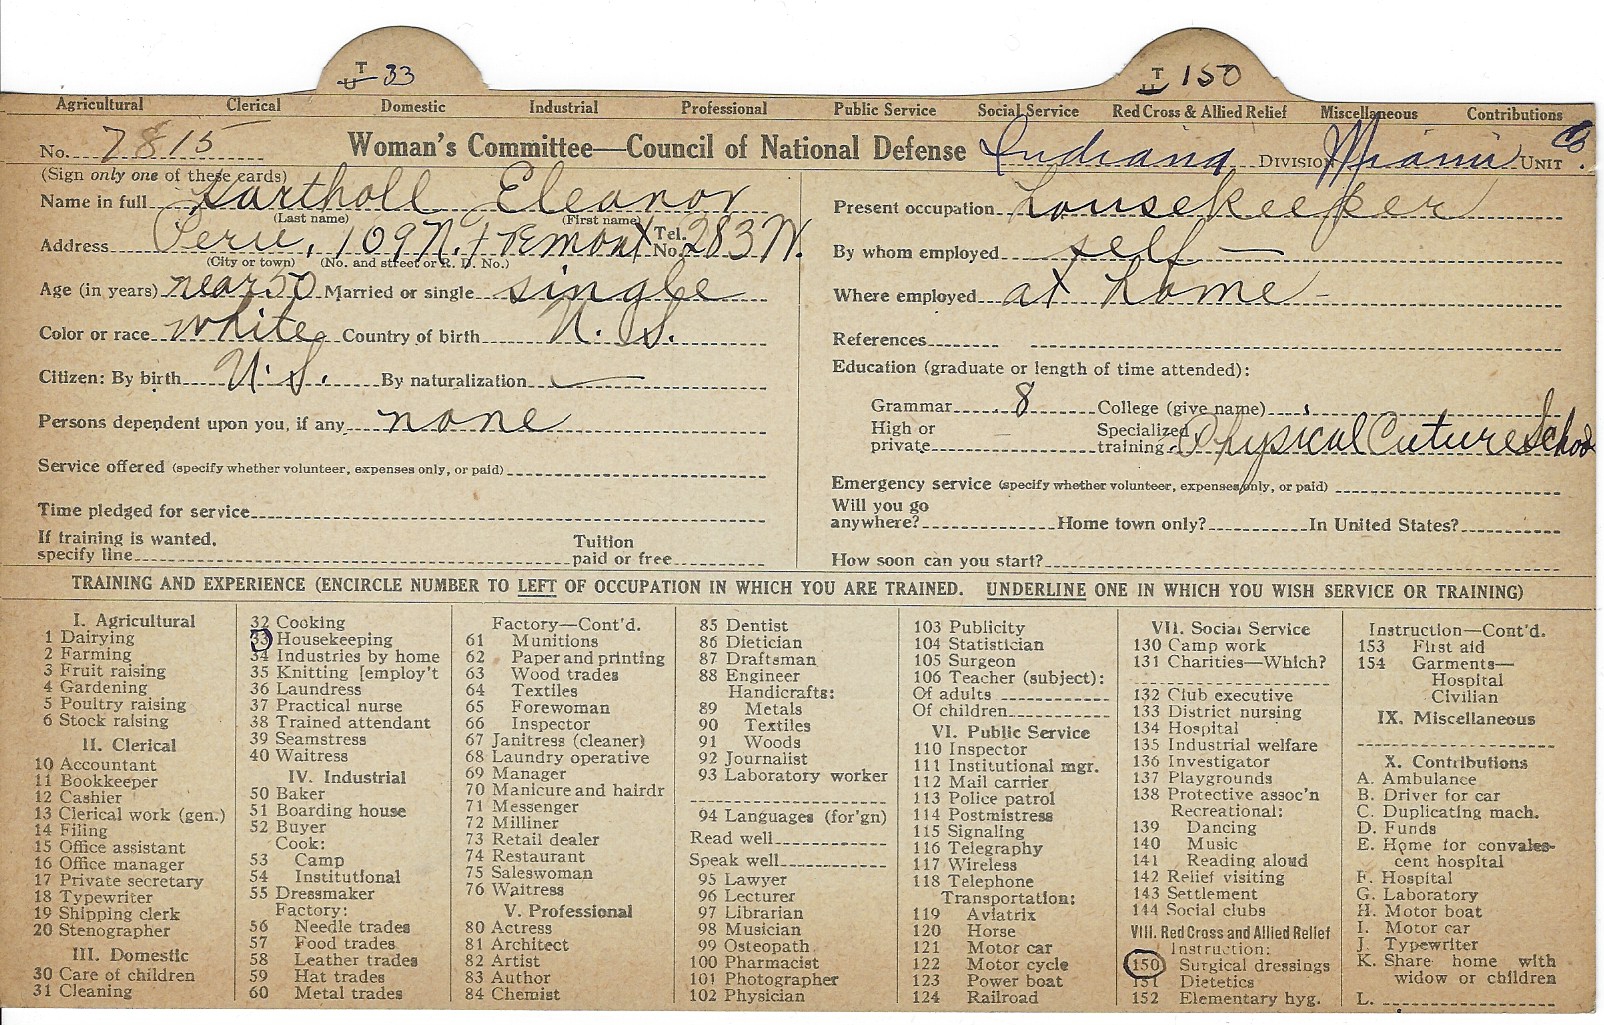 T
U 33
T
U 150
Agricultural Clerical Domestic Industrial Professional Public Service Social Service Red Cross & Allied Relief Miscellaneous Contributions
No. 7815 Woman's Committee—Council of National Defense Indiana DIVISION Miami Co. UNIT
(Sign only one of these cards)
Name in full Hartholl Eleanor
(Last name) (First name)
Address Peru, 109 N. Fremont Tel. No. 283 W.
(City or town) (No. and street or R. D. No.)
Age (in years) near 50 Married or single single
Color or race white Country of birth U. S.
Citizen: By birth U. S. By naturalization —
Persons dependent upon you, if any none
Service offered (specify whether volunteer, expenses only, or paid)
Time pledged for service
If training is wanted, specify line Tuition paid or free
Present occupation housekeeper
By whom employed self —
Where employed at home -
References
Education (graduate or length of time attended):
Grammar 8 College (give name)
High or private — Specialized training Physical Cuture School
Emergency service (specify whether volunteer, expenses only, or paid)
Will you go anywhere? Home town only? In United States?
How soon can you start?
TRAINING AND EXPERIENCE (ENCIRCLE NUMBER TO LEFT OF OCCUPATION IN WHICH YOU ARE TRAINED. UNDERLINE ONE IN WHICH YOU WISH SERVICE OR TRAINING)
I. Agricultural
1 Dairying
2 Farming
3 Fruit raising
4 Gardening
5 Poultry raising
6 Stock raising
II. Clerical
10 Accountant
11 Bookkeeper
12 Cashier
13 Clerical work (gen.)
14 Filing
15 Office assistant
16 Office manager
17 Private secretary
18 Typewriter
19 Shipping clerk
20 Stenographer
III. Domestic
30 Care of children
31 Cleaning
32 Cooking
33 Housekeeping
34 Industries by home
35 Knitting [employ't
36 Laundress
37 Practical nurse
38 Trained attendant
39 Seamstress
40 Waitress
IV. Industrial
50 Baker
51 Boarding house
52 Buyer
Cook:
53 Camp
54 Institutional
55 Dressmaker
Factory:
56 Needle trades
57 Food trades
58 Leather trades
59 Hat trades
60 Metal trades
Factory—Cont'd.
61 Munitions
62 Paper and printing
63 Wood trades
64 Textiles
65 Forewoman
66 Inspector
67 Janitress (cleaner)
68 Laundry operative
69 Manager
70 Manicure and hairdr
71 Messenger
72 Milliner
73 Retail dealer
74 Restaurant
75 Saleswoman
76 Waitress
V. Professional
80 Actress
81 Architect
82 Artist
83 Author
84 Chemist
85 Dentist
86 Dietician
87 Draftsman
88 Engineer
Handicrafts:
89 Metals
90 Textiles
91 Woods
92 Journalist
93 Laboratory worker
94 Languages (for'gn)
Read well
Speak well
95 Lawyer
96 Lecturer
97 Librarian
98 Musician
99 Osteopath
100 Pharmacist
101 Photographer
102 Physician
103 Publicity
104 Statistician
105 Surgeon
106 Teacher (subject):
Of adults
Of children
VI. Public Service
110 Inspector
111 Institutional mgr.
112 Mail carrier
113 Police patrol
114 Postmistress
115 Signaling
116 Telegraphy
117 Wireless
118 Telephone
Transportation:
119 Aviatrix
120 Horse
121 Motor car
122 Motor cycle
123 Power boat
124 Railroad
VII. Social Service
130 Camp work
131 Charities—Which?
132 Club executive
133 District nursing
134 Hospital
135 Industrial welfare
136 Investigator
137 Playgrounds
138 Protective assoc'n
Recreational:
139 Dancing
140 Music
141 Reading aloud
142 Relief visiting
143 Settlement
144 Social clubs
VIII. Red Cross and Allied Relief
Instruction:
150 Surgical dressings
151 Dietetics
152 Elementary hyg.
Instruction—Cont'd.
153 First aid
154 Garments—
Hospital
Civilian
IX. Miscellaneous
X. Contributions
A. Ambulance
B. Driver for car
C. Duplicating mach.
D. Funds
E. Home for convales-
cent hospital
F. Hospital
G. Laboratory
H. Motor boat
I. Motor car
J. Typewriter
K. Share home with
widow or children
L.